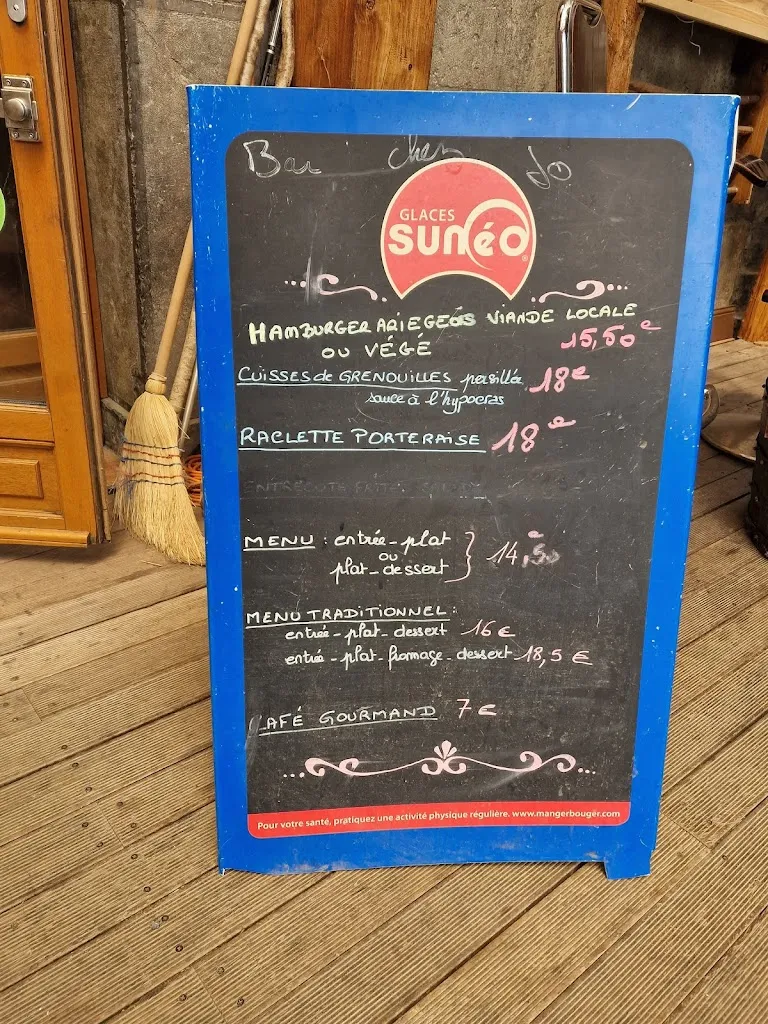 Bar chez Jo
GLACES
sunéo
HAMBURGER ARIEGEOIS VIANDE LOCALE
OU VÉGÉ 15,50€
CUISSES de GRENOUILLES persillée 18€
sauce à l'hypocras
RACLETTE PORTERAISE 18€
MENU : entrée - plat
ou
plat - dessert } 14,50€
MENU TRADITIONNEL :
entrée - plat - dessert 16 €
entrée - plat - fromage - dessert 18,5 €
CAFÉ GOURMAND 7 €
Pour votre santé, pratiquez une activité physique régulière. www.mangerbouger.com